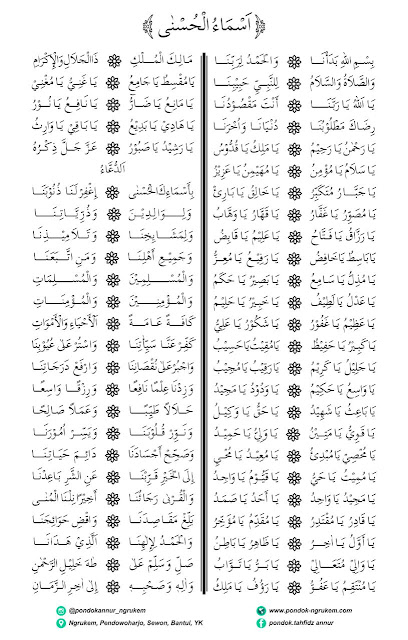 أَسْمَاءُ الْحُسْنٰى
بِسْمِ اللهِ بَدَأْنَا وَالْحَمْدُ لِرَبِّنَا
وَالصَّلَاةُ وَالسَّلَامُ لِلنَّبِيِّ حَبِيْبِنَا
يَا اَللهُ يَا رَبَّنَا أَنْتَ مَقْصُوْدُنَا
رِضَاكَ مَطْلُوْبُنَا دُنْيَانَا وَأُخْرَنَا
يَا رَحْمٰنُ يَا رَحِيْمُ يَا مَلِكُ يَا قُدُّوْسُ
يَا سَلَامُ يَا مُؤْمِنُ يَا مُهَيْمِنُ يَا عَزِيْزُ
يَا جَبَّارُ مُتَكَبِّرُ يَا خَالِقُ يَا بَارِئُ
يَا مُصَوِّرُ يَا غَفَّارُ يَا قَهَّارُ يَا وَهَّابُ
يَا رَزَّاقُ يَا فَتَّاحُ يَا عَلِيْمُ يَا قَابِضُ
يَا بَاسِطُ يَا خَافِضُ يَا رَفِيْعُ يَا مُعِزُّ
يَا مُذِلُّ يَا سَامِعُ يَا بَصِيْرُ يَا حَكَمُ
يَا عَدْلُ يَا لَطِيْفُ يَا خَبِيْرُ يَا حَلِيْمُ
يَا عَظِيْمُ يَا غَفُوْرُ يَا شَكُوْرُ يَا عَلِيُّ
يَا كَبِيْرُ يَا حَفِيْظُ يَا مُقِيْتُ يَا حَسِيْبُ
يَا جَلِيْلُ يَا كَرِيْمُ يَا رَقِيْبُ يَا مُجِيْبُ
يَا وَاسِعُ يَا حَكِيْمُ يَا وَدُوْدُ يَا مَجِيْدُ
يَا بَاعِثُ يَا شَهِيْدُ يَا حَقُّ يَا وَكِيْلُ
يَا قَوِيُّ يَا مَتِيْنُ يَا وَلِيُّ يَا حَمِيْدُ
يَا مُحْصِيْ يَا مُبْدِئُ يَا مُعِيْدُ يَا مُحْيِيْ
يَا مُمِيْتُ يَا حَيُّ يَا قَيُّوْمُ يَا وَاجِدُ
يَا مَجِيْدُ يَا وَاحِدُ يَا أَحَدُ يَا صَمَدُ
يَا قَادِرُ يَا مُقْتَدِرُ يَا مُقَدِّمُ يَا مُؤَخِّرُ
يَا أَوَّلُ يَا اٰخِرُ يَا ظَاهِرُ يَا بَاطِنُ
يَا وَالِيْ مُتَعَالِيْ يَا بَرُّ يَا تَوَّابُ
يَا مُنْتَقِمُ يَا عَفُوُّ يَا رَؤُفُ يَا مَلِكُ
مَالِكَ الْمُلْكِ ذَا الْجَلَالِ وَالْإِكْرَامِ
يَا مُقْسِطُ يَا جَامِعُ يَا غَنِيُّ يَا مُغْنِيْ
يَا مَانِعُ يَا ضَارُّ يَا نَافِعُ يَا نُوْرُ
يَا هَادِيْ يَا بَدِيْعُ يَا بَاقِيْ يَا وَارِثُ
يَا رَشِيْدُ يَا صَبُوْرُ عَزَّ جَلَّ ذِكْرُهُ
اَلدُّعَاءُ
بِأَسْمَاءِكَ الْحُسْنٰى إِغْفِرْلَنَا ذُنُوْبَنَا
وَلِوَالِدِيْنَ وَذُرِّيَّاتِنَا
وَلِمَشَايِخِنَا وَتَلَامِيْذِنَا
وَجَمِيْعِ أَهْلِنَا وَمَنِ اتَّبَعَنَا
وَالْمُسْلِمِيْنَ وَالْمُسْلِمَاتِ
وَالْمُؤْمِنِيْنَ وَالْمُؤْمِنَاتِ
كَافَّةً عَامَّةً اَلْأَحْيَاءِ وَالْأَمْوَاتِ
كَفِّرْ عَنَّا سَيِّأٰتِنَا وَاسْتُرْ عَلٰى عُيُوْبِنَا
وَاجْبُرْ عَلٰى نُقْصَانِنَا وَارْفَعْ دَرَجَاتِنَا
وَزِدْنَا عِلْمًا نَافِعًا وَرِزْقًا وَاسِعًا
حَلَالًا طَيِّبًا وَعَمَلًا صَالِحًا
وَنَوِّرْ قُلُوْبَنَا وَيَسِّرْ أُمُوْرَنَا
وَصَحِّحْ أَجْسَادَنَا دَائِمَ حَيَاتِنَا
إِلَى الْخَيْرِ قَرِّبْنَا عَنِ الشَّرِّ بَاعِدْنَا
وَالْقُرْبٰى رَجَائُنَا أَخِيْرًا نِلْنَا الْمُنٰى
بَلِّغْ مَقَاصِدَنَا وَاقْضِ حَوَائِجَنَا
وَالْحَمْدُ لِإِلٰهِنَا اَلَّذِيْ هَدَانَا
صَلِّ وَسَلِّمْ عَلٰى طٰهَ خَلِيْلِ الرَّحْمٰنِ
وَاٰلِهِ وَصَحْبِهِ إِلٰى اٰخِرِ الزَّمَانِ
@pondokannur_ngrukem www.pondok-ngrukem.com
Ngrukem, Pendowoharjo, Sewon, Bantul, YK pondok.tahfidz annur